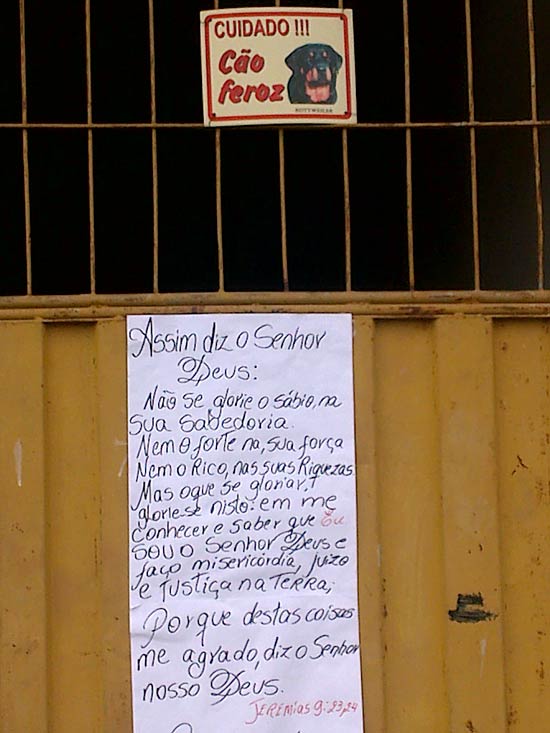 CUIDADO !!!
Cão
feroz
ROTTWEILER
Assim diz o Senhor
Deus:
Não se glorie o sábio, na
sua sabedoria.
Nem o forte na, sua força
Nem o Rico, nas suas Riquezas
Mas o que se gloriar,
glorie-se nisto: em me
conhecer e saber que Eu
sou o Senhor Deus e
faço misericórdia, juizo
e justiça na Terra;
Porque destas coisas
me agrado, diz o Senhor
nosso Deus.
Jeremias 9:23,24